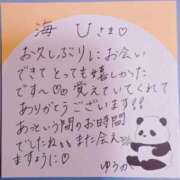 海 Uさま♡
お久しぶりにお会い
できて とっても嬉しかった
です〜♡ 覚えていてくれて
ありがとうございます!!
あっという間のお時間
でしたね また会え
ますように♡
ゆうの